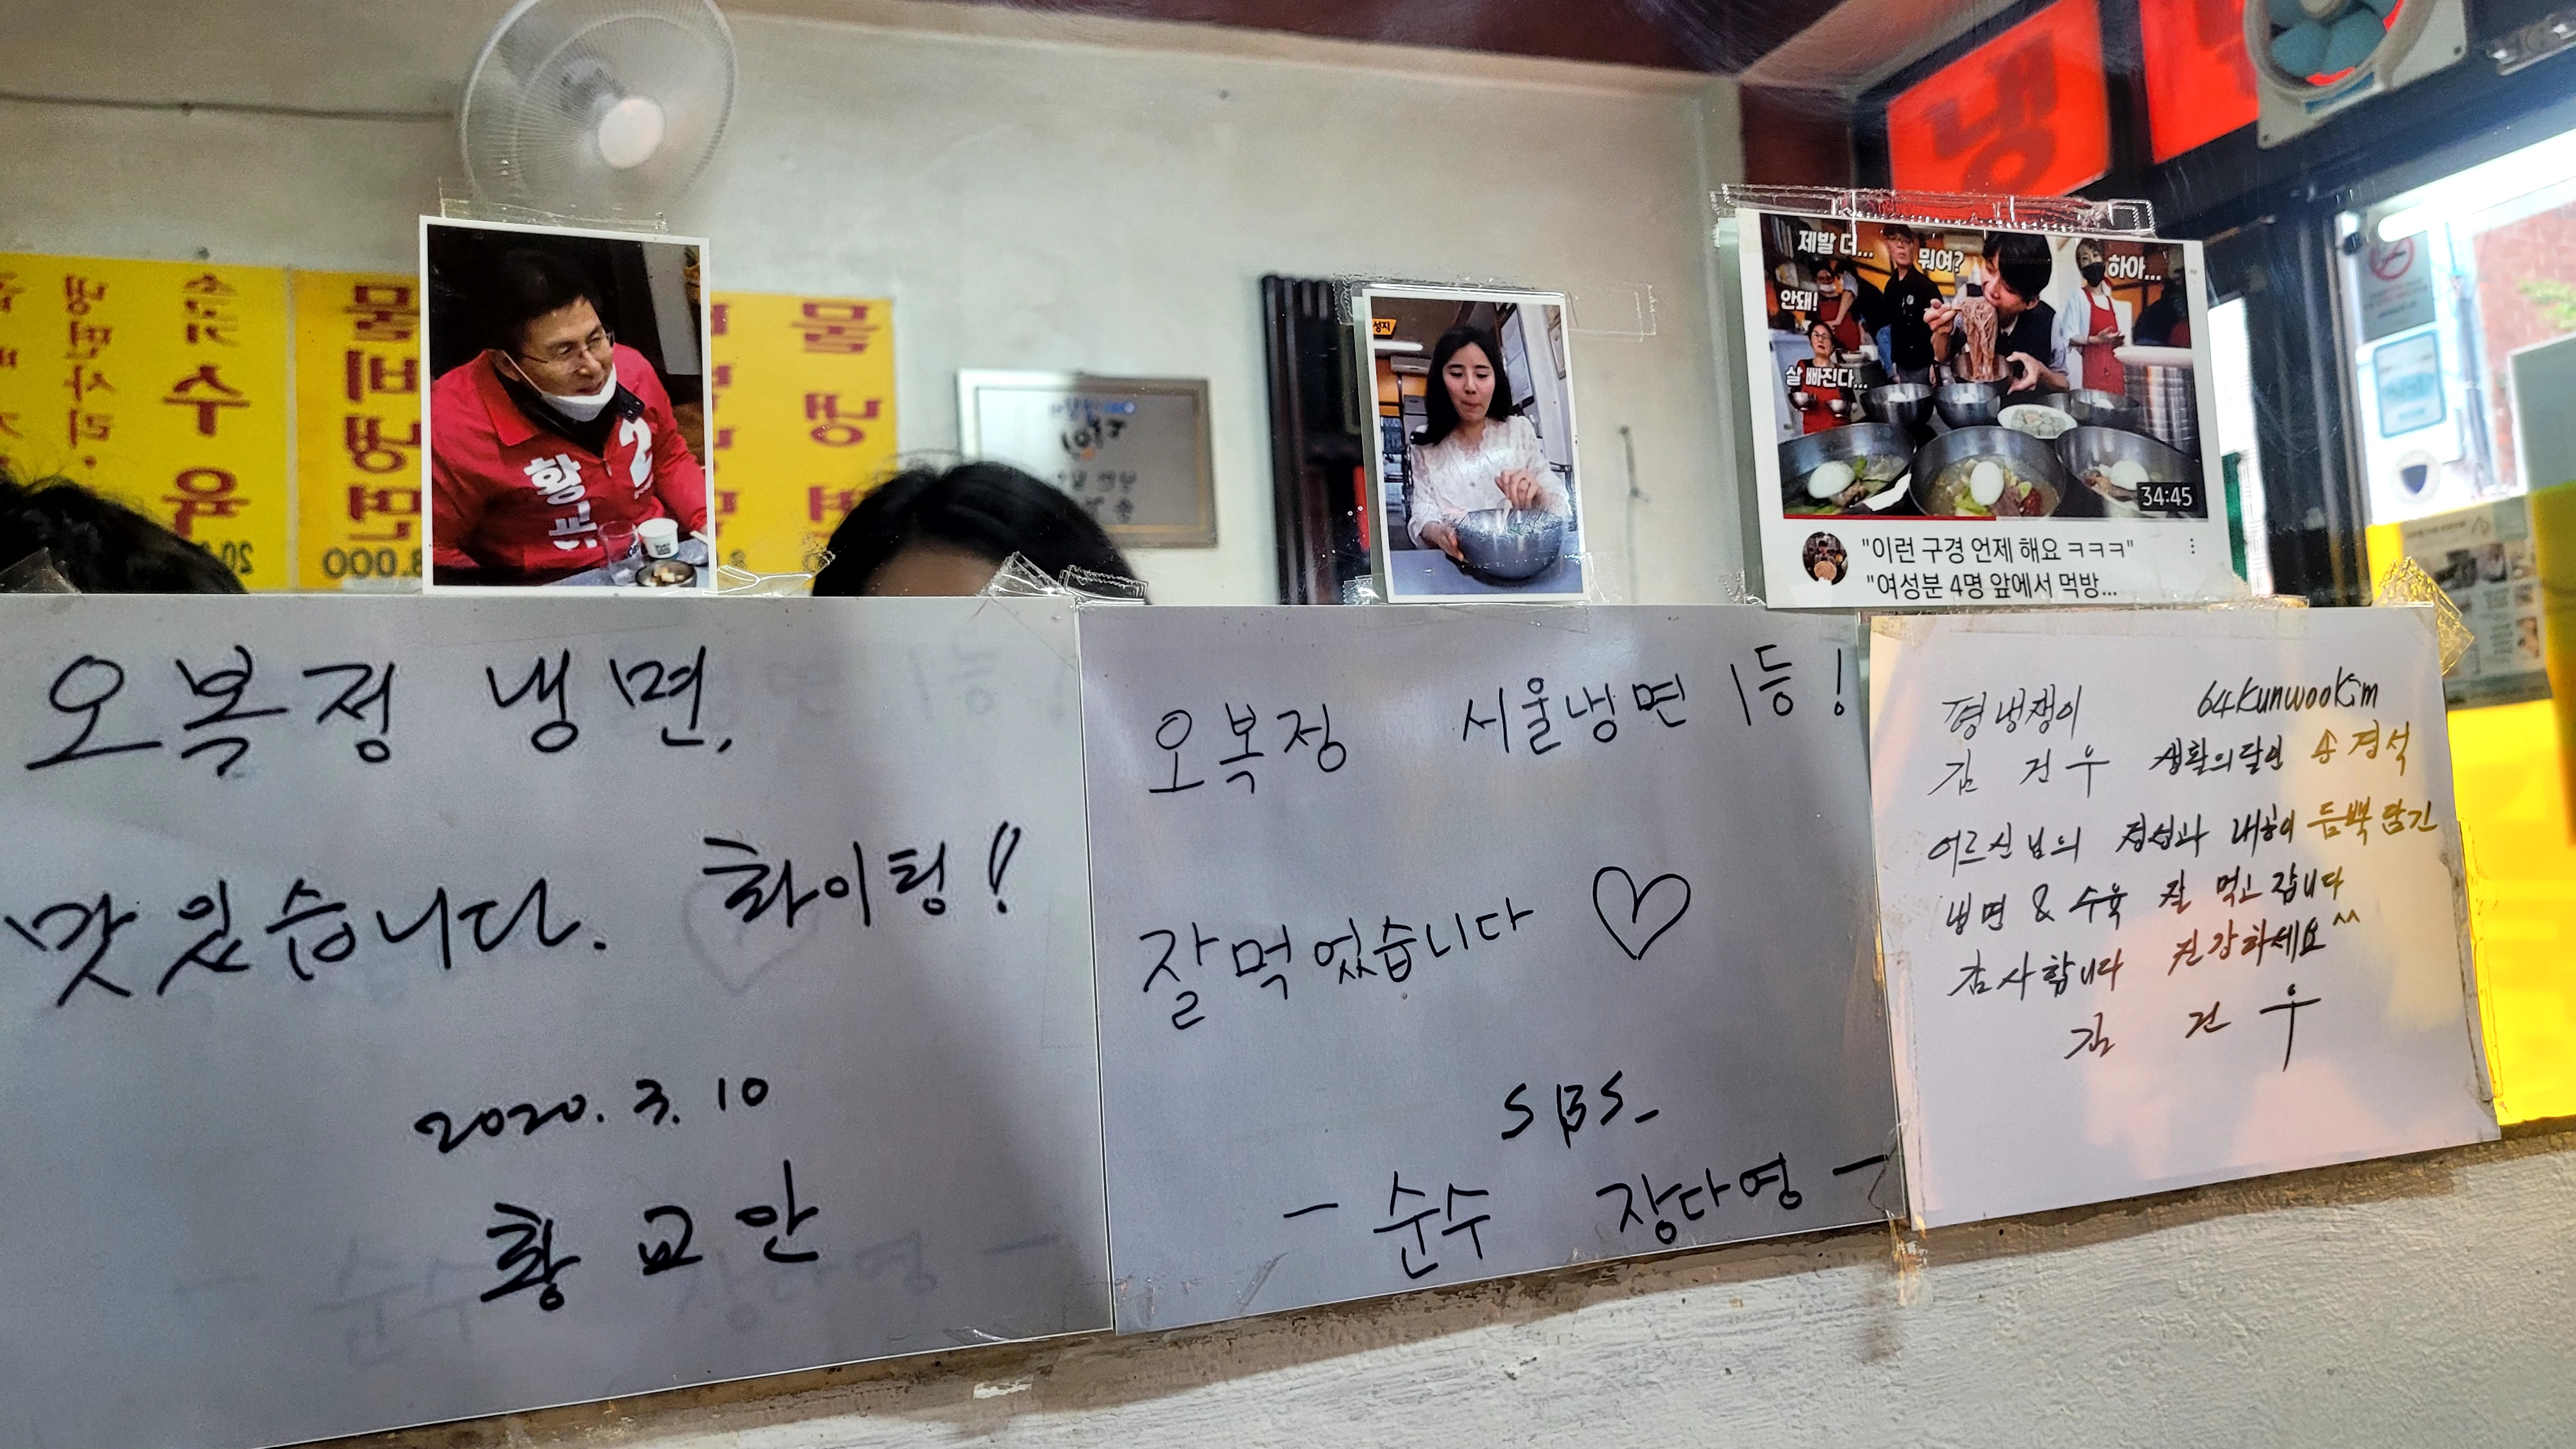 냉
제발 더...
뭐여?
하아...
안돼!
살 빠진다...
34:45
"이런 구경 언제 해요 ㅋㅋㅋ"
"여성분 4명 앞에서 먹방...
성지
2
황교
물냉면
비냉면
물냉면
수육
냉면사리
8.000
오복정 냉면,
맛있습니다. 화이팅!
2020. 3. 10
황교안
오복정 서울냉면 1등!
잘먹었습니다 ♡
SBS_
- 순수 장다영 -
평냉쟁이 64kunwookim
김건우 생활의달인 송경석
어르신님의 정성과 내공이 듬뿍 담긴
냉면 & 수육 잘 먹고 갑니다
감사합니다 건강하세요^^
김건우